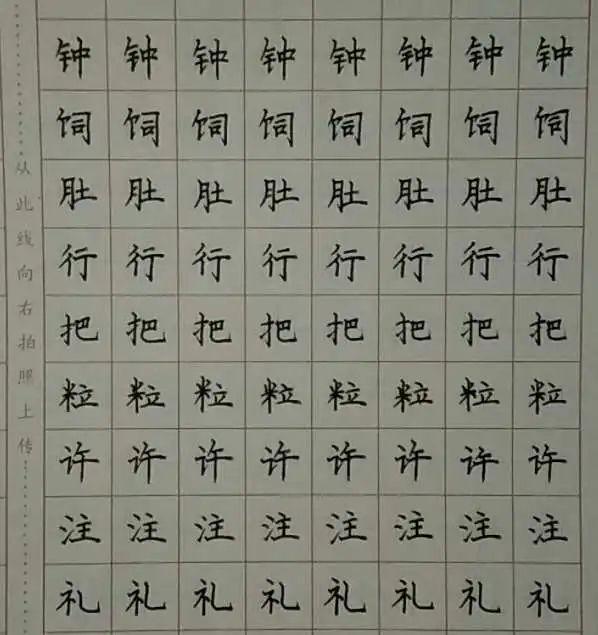 钟钟钟钟钟钟钟钟
饲饲饲饲饲饲饲饲
肚肚肚肚肚肚肚肚
行行行行行行行行
把把把把把把把把
粒粒粒粒粒粒粒粒
许许许许许许许许
注注注注注注注注
礼礼礼礼礼礼礼礼
从此线向右拍照上传